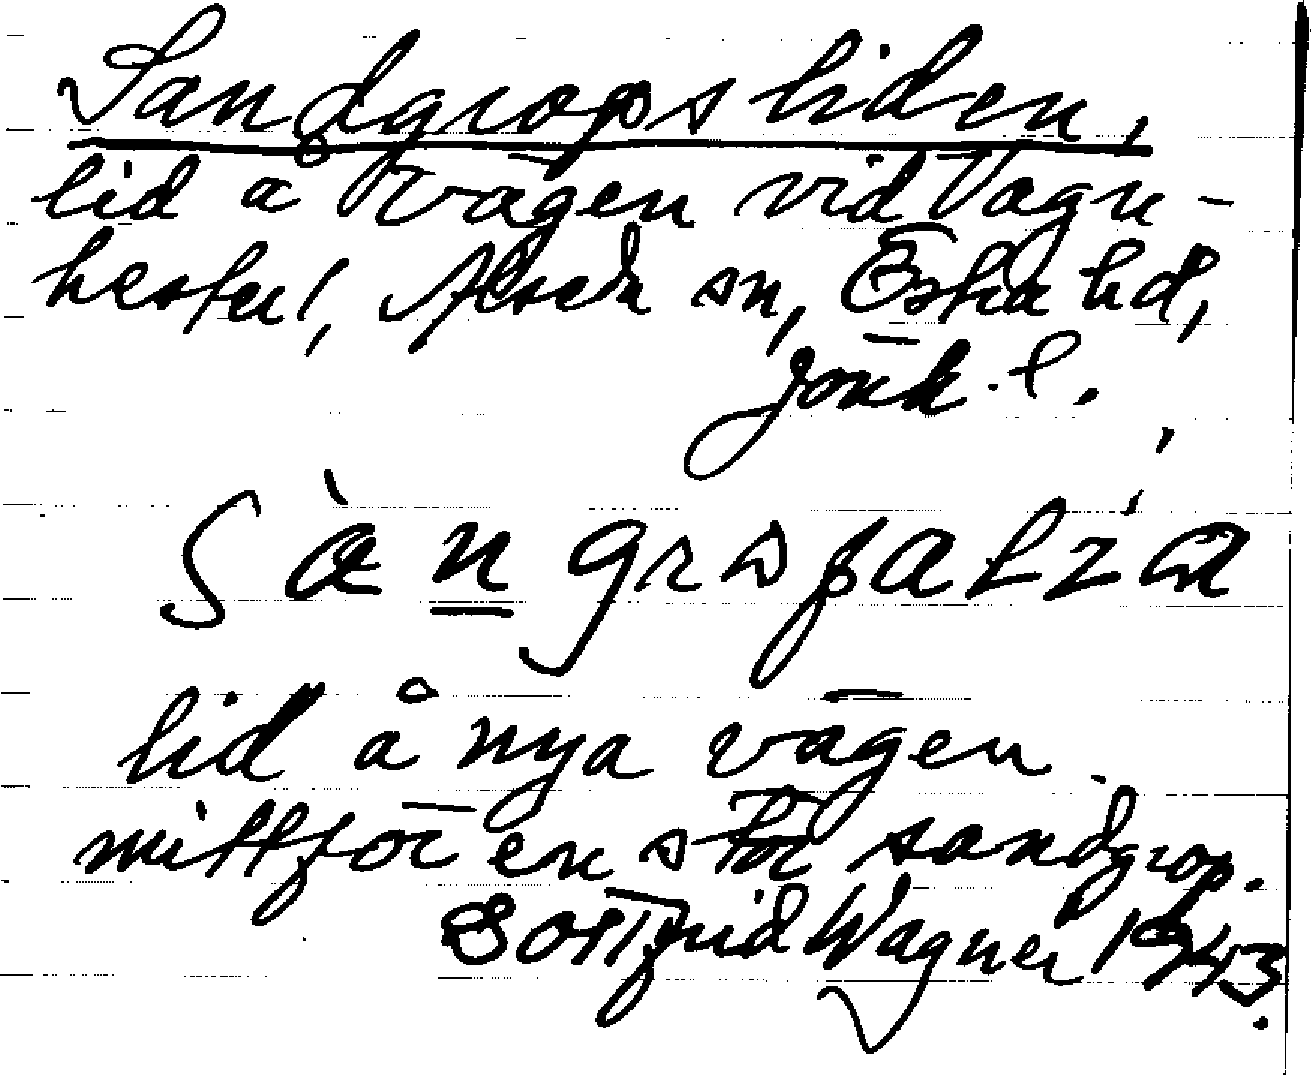 Sandgropsliden,
lid å vägen vid Vagn-
hester, Alseda sn, Östra hd,
Jönk. l.
lid å nya vägen
mittför en stor sandgrop.
Gottfrid Wagner 1943.